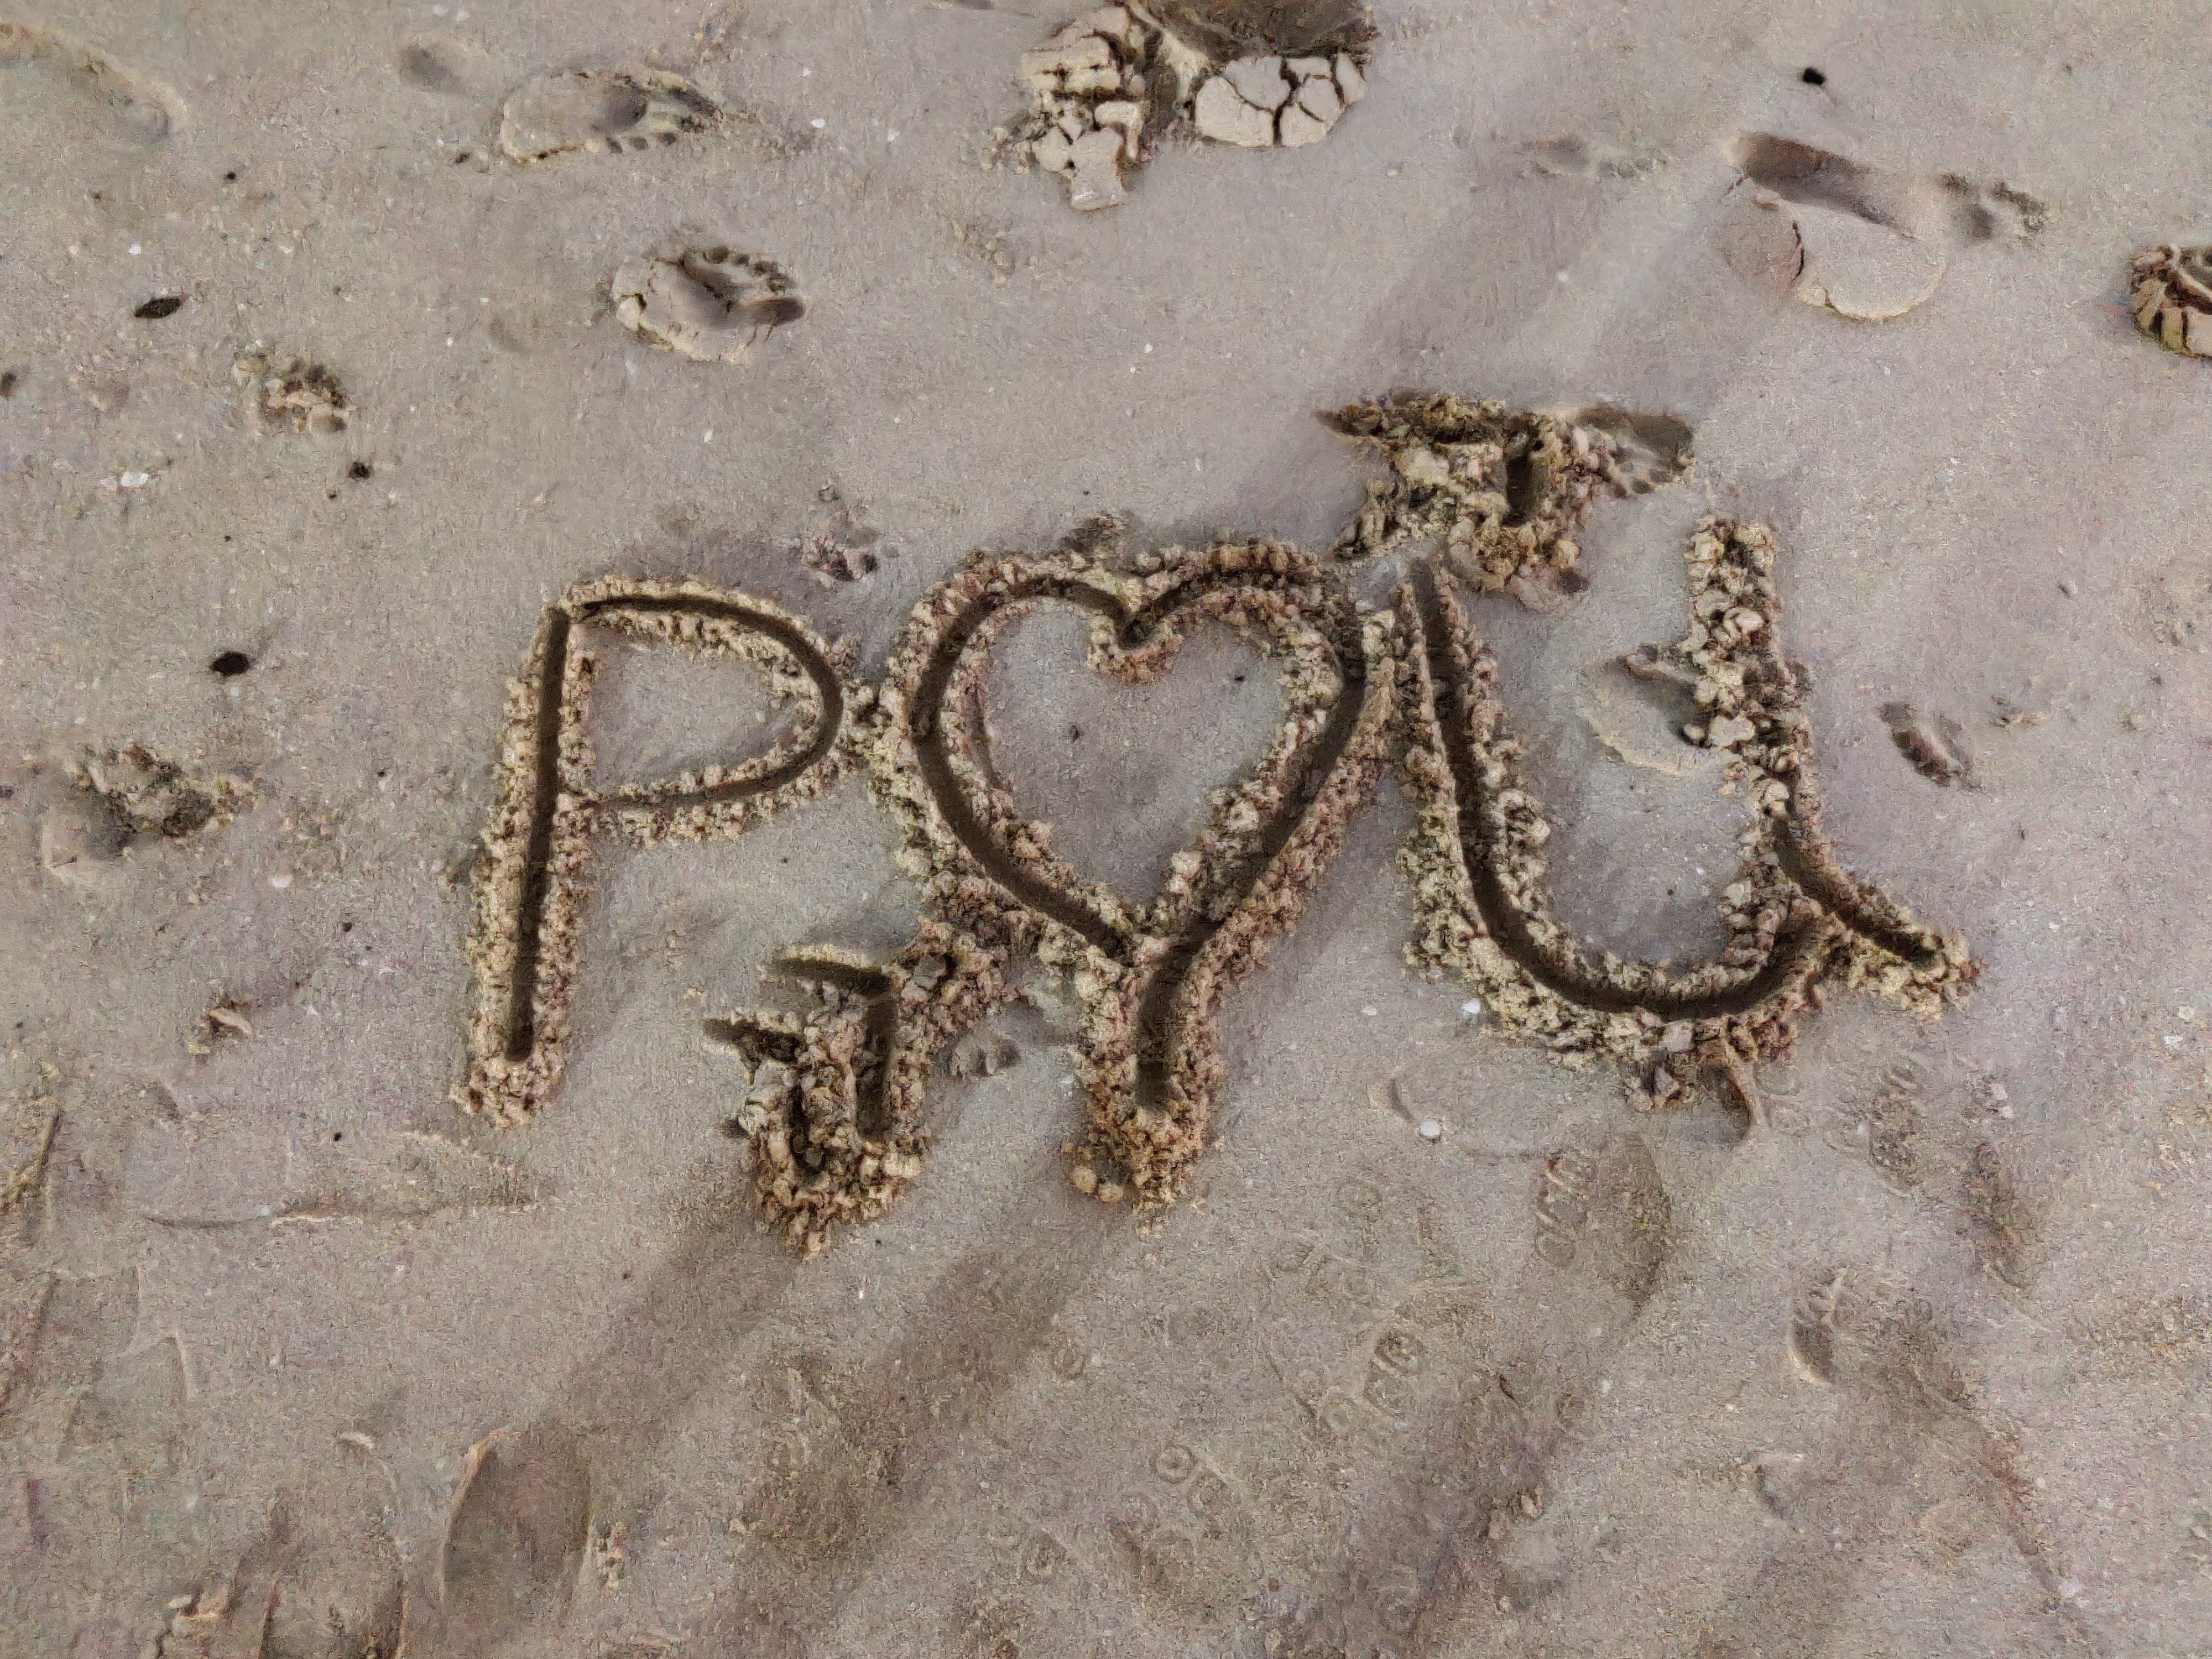 P♡U